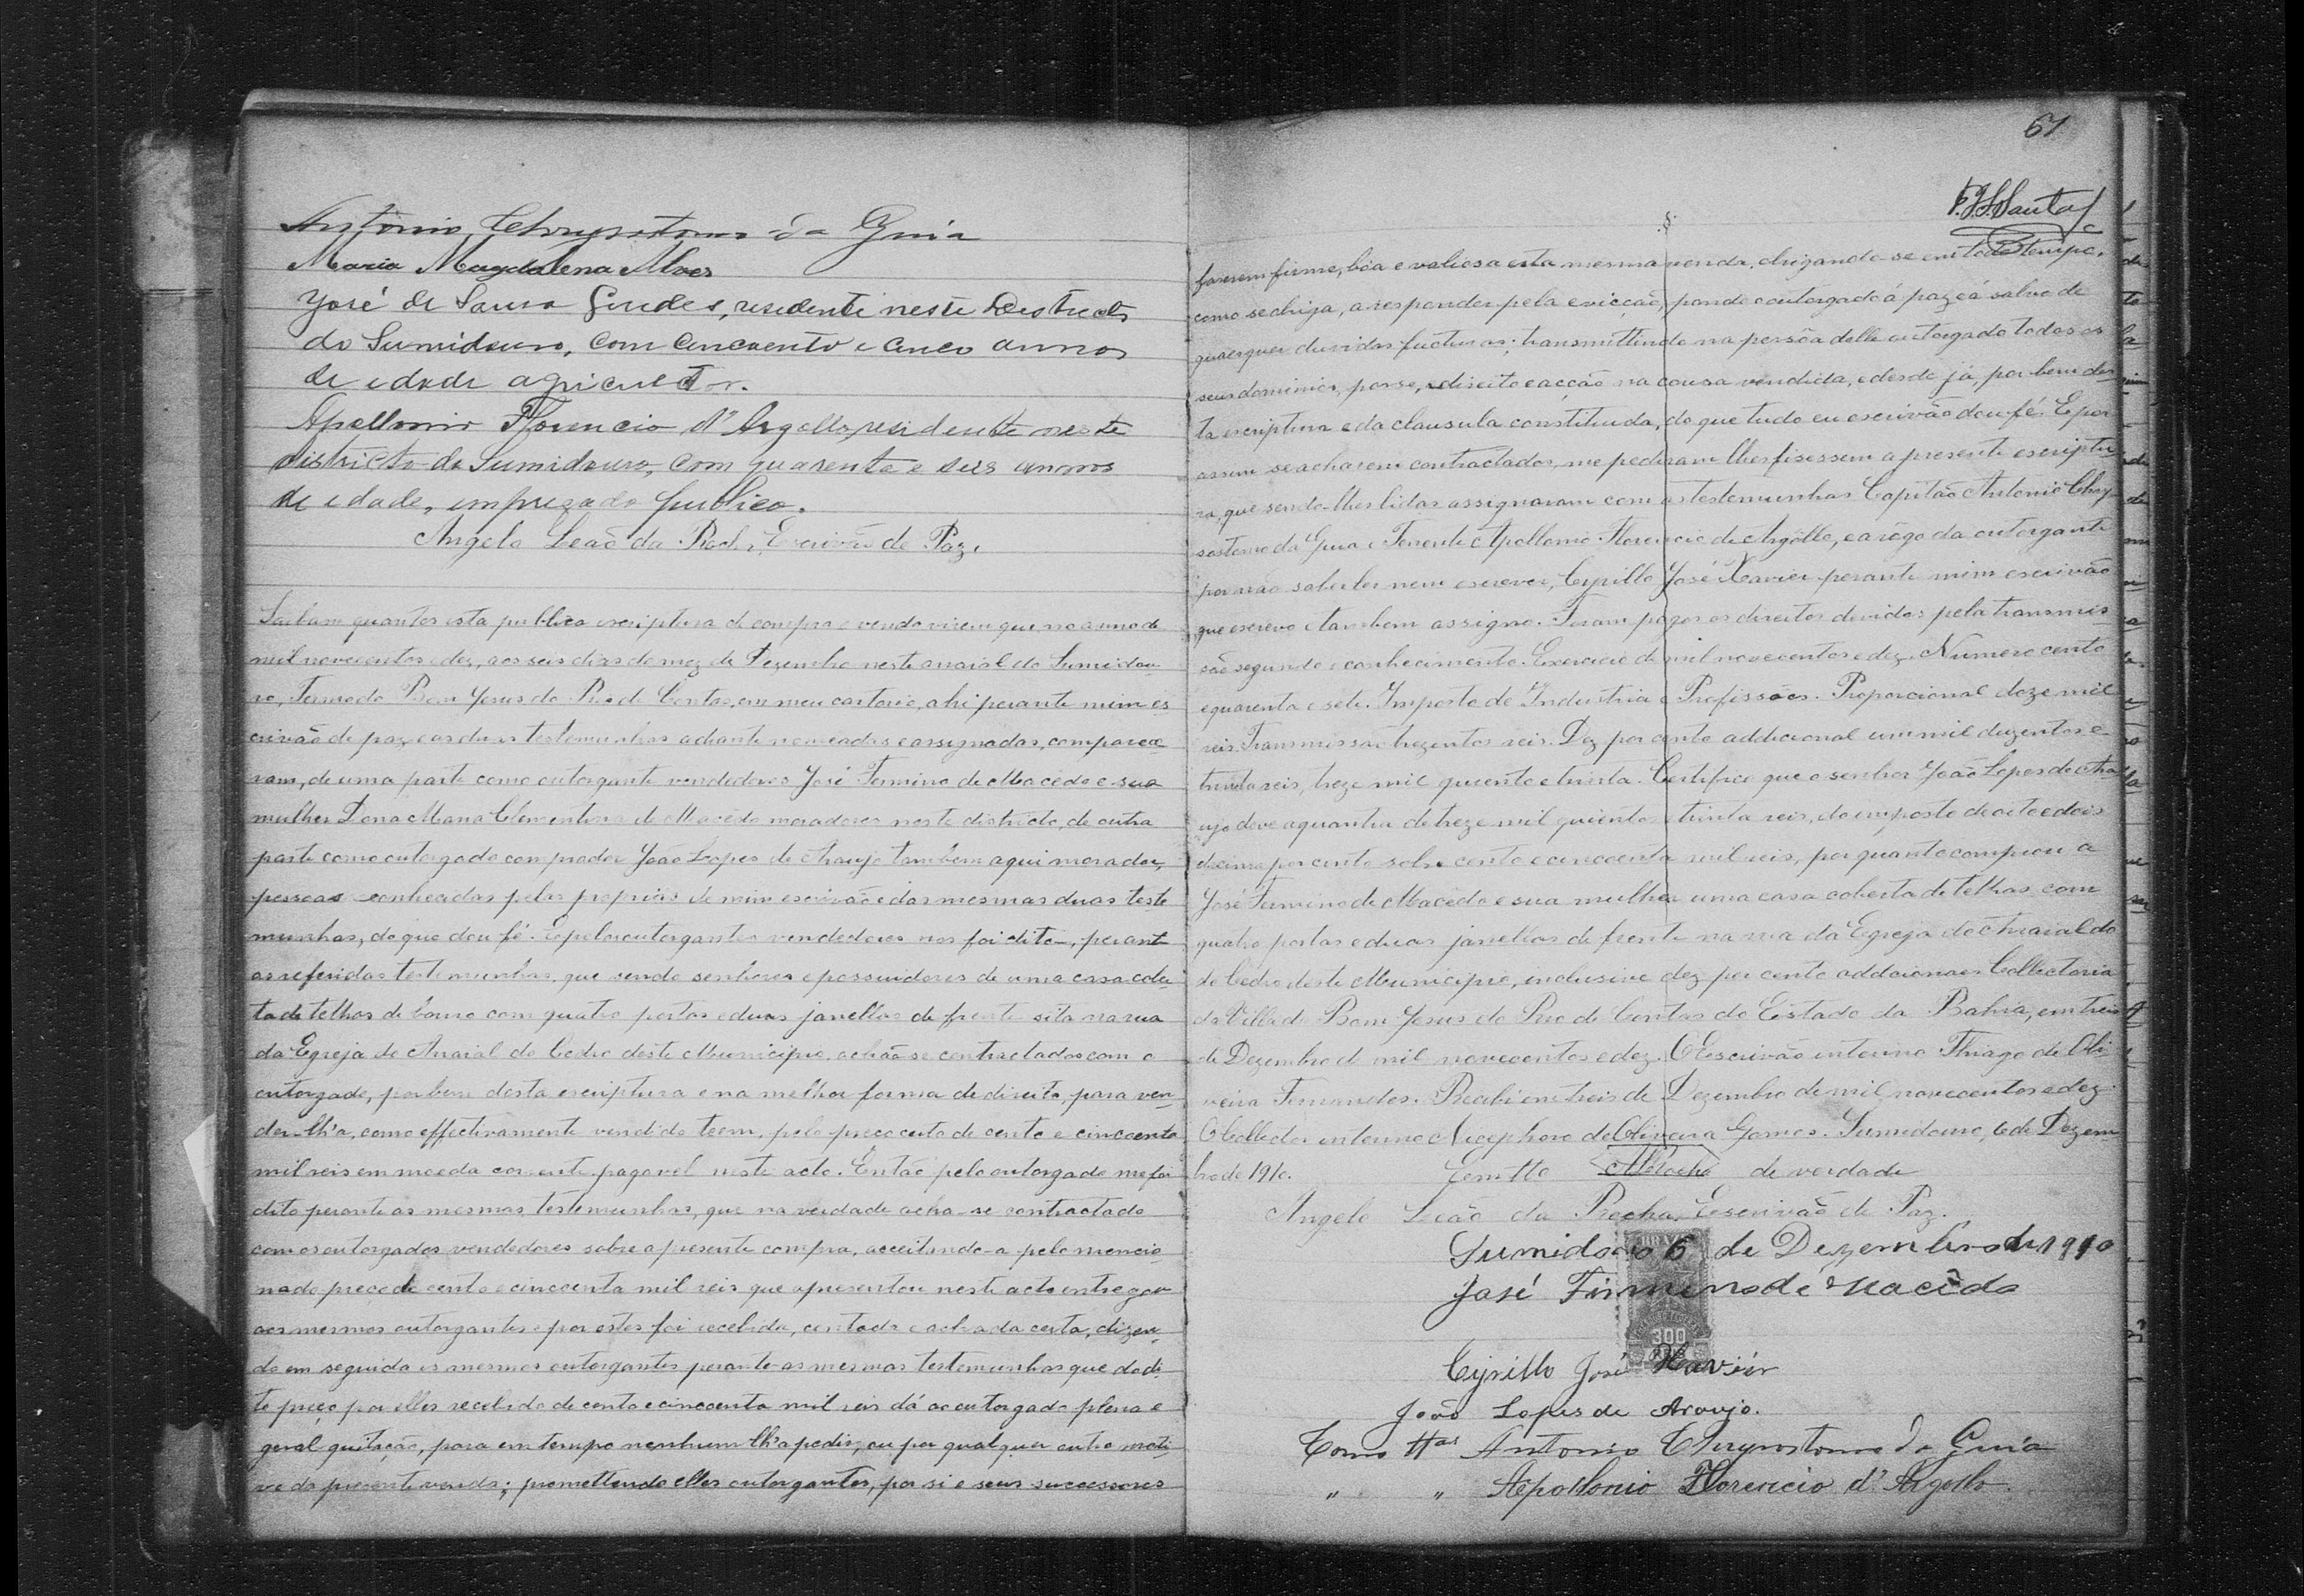 Antonio Chrysostomo da Guia
Maria Magdalena Alves
José de Sousa Guedes, residente neste Destrcto
do Sumidouro, com cincoenta e cinco annos
de edade agricultor.
Apollonio Florencio d'Argollo, residente neste
districto do Sumidouro, com quarenta e seis annos
de edade, emprezado publico.
Angelo Leão da Rocha, Escrivão de Paz.
Saibam quantos esta publica escriptura de compra e venda virem que, no anno de
mil novecentos e dez, aos seis dias do mez de Dezembro neste arraial do Sumidou-
ro, Termo do Bom Jesus do Rio de Contas, em meu cartorio, ahi perante mim es-
crivão de paz e as duas testemunhas adiante nomeadas e assignadas, comparece-
ram, de uma parte como outorgante vendedores José Firmino de Macêdo e sua
mulher Dona Maria Clementina de Macêdo moradores neste districto, de outra
parte como outorgado comprador João Lopes de Araujo tambem aqui morador,
pessoas conhecidas pelas proprias de mim escrivão e das mesmas duas teste-
munhas, do que dou fé. E pelos outorgantes vendedores nos foi dito, perante
as referidas testemunhas, que sendo senhores e possuidores de uma casa cober-
ta de telhas de barro com quatro portas e duas janellas de frente sita na rua
da Egreja do Arraial do Cedro deste Municipio, achão-se contractados com o
outorgado, por bem desta escriptura e na melhor forma de direito, para ven-
der-lh'a, como effectivamente vendido teem, pelo preço certo de cento e cincoenta
mil reis em moeda corrente, pagavel neste acto. Então pelo outorgado me foi
dito perante as mesmas testemunhas, que na verdade acha-se contractado
com os outorgados vendedores sobre a presente compra, acceitando-a pelo mencio-
nado preço de cento e cincoenta mil reis que apresentou neste acto entregou
aos mesmos outorgantes e por estes foi recebida, contada e achada certa, dizen-
do em seguida os mesmos outorgantes perante as mesmas testemunhas que do di-
to preço por elles recebido de cento e cincoenta mil reis dá ao outorgado plena e
geral quitação, para em tempo nenhum lh'a pedir, ou por qualquer outro moti-
vo da presente venda; promettendo elles outorgantes, por si e seus successores
61
fazerem firme, bôa e valiosa esta mesma venda, obrigando-se em todo tempo,
como se obriga, a responder pela evicção, pondo o outorgado á paz e á salvo de
quaesquer duvidas futuras; transmittindo na pessôa delle outorgado todos os
seus dominios, posse, direito e acção na cousa vendida, e desde já, por bem des-
ta escriptura e da clausula constituida, do que tudo eu escrivão dou fé. E por
assim se acharem contractados, me pediram lhes fisessem a presente escriptu-
ra, que sendo-lhes lidas assignaram com as testemunhas Capitão Antonio Chry-
sostomo da Guia e Tenente Apollonio Florencio de Argôllo, e a rôgo da outorgante
por não saber ler nem escrever, Cyrillo José Xavier perante mim escrivão
que escrevo e tambem assigno. Foram pagos os direitos devidos pela transmis-
são segundo o conhecimento. Exercicio de mil novecentos e dez. Numero cento
e quarenta e sete. Imposto de Industria e Profissões. Proporcional doze mil
reis. Transmissão trezentos reis. Dez por cento addicional um mil duzentos e
trinta reis, treze mil quiento e trinta. Certifico que o senhor João Lopes de Ara-
ujo deve a quantia de treze mil quiento e trinta reis, do imposto de oito e dois
decimo por cento sobre cento e cincoenta mil reis, por quanto comprou a
José Firmino de Macêdo e sua mulher uma casa coberta de telhas com
quatro portas e duas janellas de frente na rua da Egreja do Arraial do
do Cedro deste Municipio, inclusive dez por cento addicionaes Collectoria
da Villa do Bom Jesus do Rio de Contas do Estado da Bahia, em treis
de Dezembro de mil novecentos e dez. O escrivão interino Thiago de Oli-
veira Fernandes. Recebi em treis de Dezembro de mil novecentos e dez.
O Collector interino Nicephoro de Oliveira Gomes. Sumidouro, 6 de Dezem-
bro de 1910.
Em tto de verdade
Angelo Leão da Rocha, Escrivão de Paz.
Sumidouro 6 de Dezembro de 1910
José Firmino de Macêdo
300
REIS
Cyrillo José Xavier
João Lopes de Araujo.
Como ttas Antonio Chrysostomo da Guia
" " Apollonio Florencio d'Argollo.